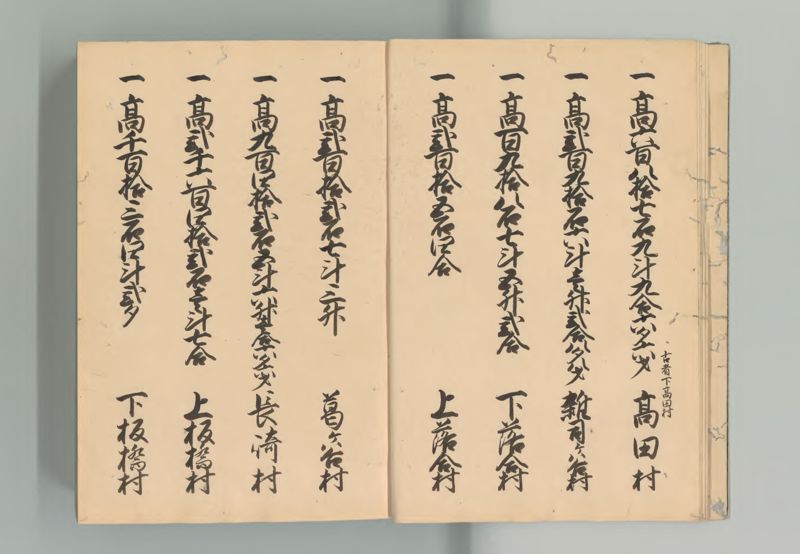 一高六百八拾七石九斗九合六夕六才 高田村
古者下高田村
一高弐百九拾石六斗壱升弐合八夕八才 雑司ヶ谷村
一高百九拾八石七斗五升弐合 下落合村
一高弐百拾五石四合 上落合村
一高弐百拾弐石七斗三升 葛ヶ谷村
一高九百四拾弐石五斗六升壱合六夕六才 長崎村
一高弐千六百四拾弐石壱斗七合 上板橋村
一高千百拾三石四斗弐夕 下板橋村